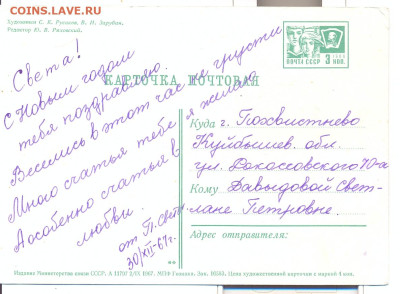 COINS.LAVE.RU
Художники С. К. Русаков, В. И. Зарубин.
Редактор Ю. В. Ряховский.
ПОЧТА СССР 3 КОП.
КАРТОЧКА ПОЧТОВАЯ
Света!
С Новым годом
тебя поздравляю.
Веселись в этот час не грусти
Много счастья тебе я желаю
А особенно счастья в
любви.
от П. Светы
30/XII-67г.
Куда г. Похвистнево
Куйбышев. обл.
ул. Рокоссовского 70-а
Кому Давыдовой Свет-
лане Петровне.
Адрес отправителя:
Издание Министерства связи СССР. 1967. МПФ Гознака. Зак. Цена художественной карточки с маркой 4 коп.